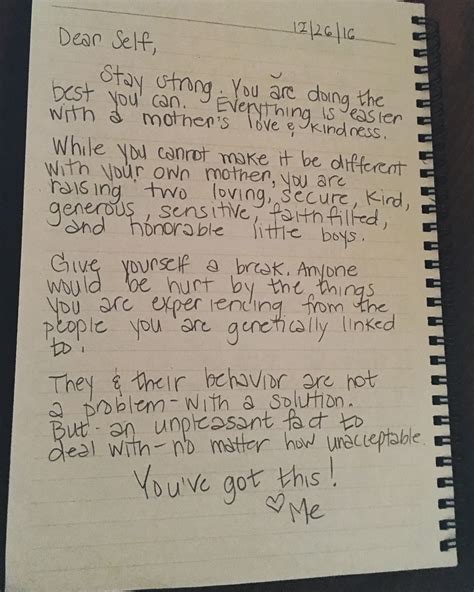 12/26/16
Dear Self,
Stay strong. You are doing the
best you can. Everything is easier
with a mother's love & kindness.
While you cannot make it be different
with your own mother, you are
raising two loving, secure, kind,
generous, sensitive, faithfilled,
and honorable little boys.
Give yourself a break. Anyone
would be hurt by the things
you are experiencing from the
people you are genetically linked
to.
They & their behavior are not
a problem-with a solution.
But-an unpleasant fact to
deal with-no matter how unacceptable.
You've got this!
♡Me